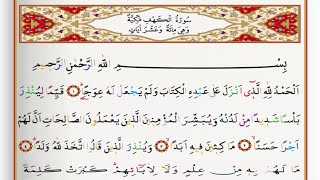 سُورَةُ الْكَهْفِ مَكِّيَّةٌ
وَهِيَ مِائَةٌ وَعَشْرُ آيَاتٍ
بِسْمِ اللّٰهِ الرَّحْمٰنِ الرَّحِيمِ
اَلْحَمْدُ لِلّٰهِ الَّذٖٓي اَنْزَلَ عَلٰى عَبْدِهِ الْكِتَابَ وَلَمْ يَجْعَلْ لَهُ عِوَجًاۜ ﴿١﴾ قَيِّمًا لِيُنْذِرَ
بَأْسًا شَدٖيدًا مِنْ لَدُنْهُ وَيُبَشِّرَ الْمُؤْمِنٖينَ الَّذٖينَ يَعْمَلُونَ الصَّالِحَاتِ اَنَّ لَهُمْ
اَجْرًا حَسَنًاۙ ﴿٢﴾ مَاكِثٖينَ فٖيهِ اَبَدًاۙ ﴿٣﴾ وَيُنْذِرَ الَّذٖينَ قَالُوا اتَّخَذَ اللّٰهُ وَلَدًا ﴿٤﴾
مَا لَهُمْ بِهٖ مِنْ عِلْمٍ وَلَا لِاٰبَٓائِهِمْۜ كَبُرَتْ كَلِمَةً